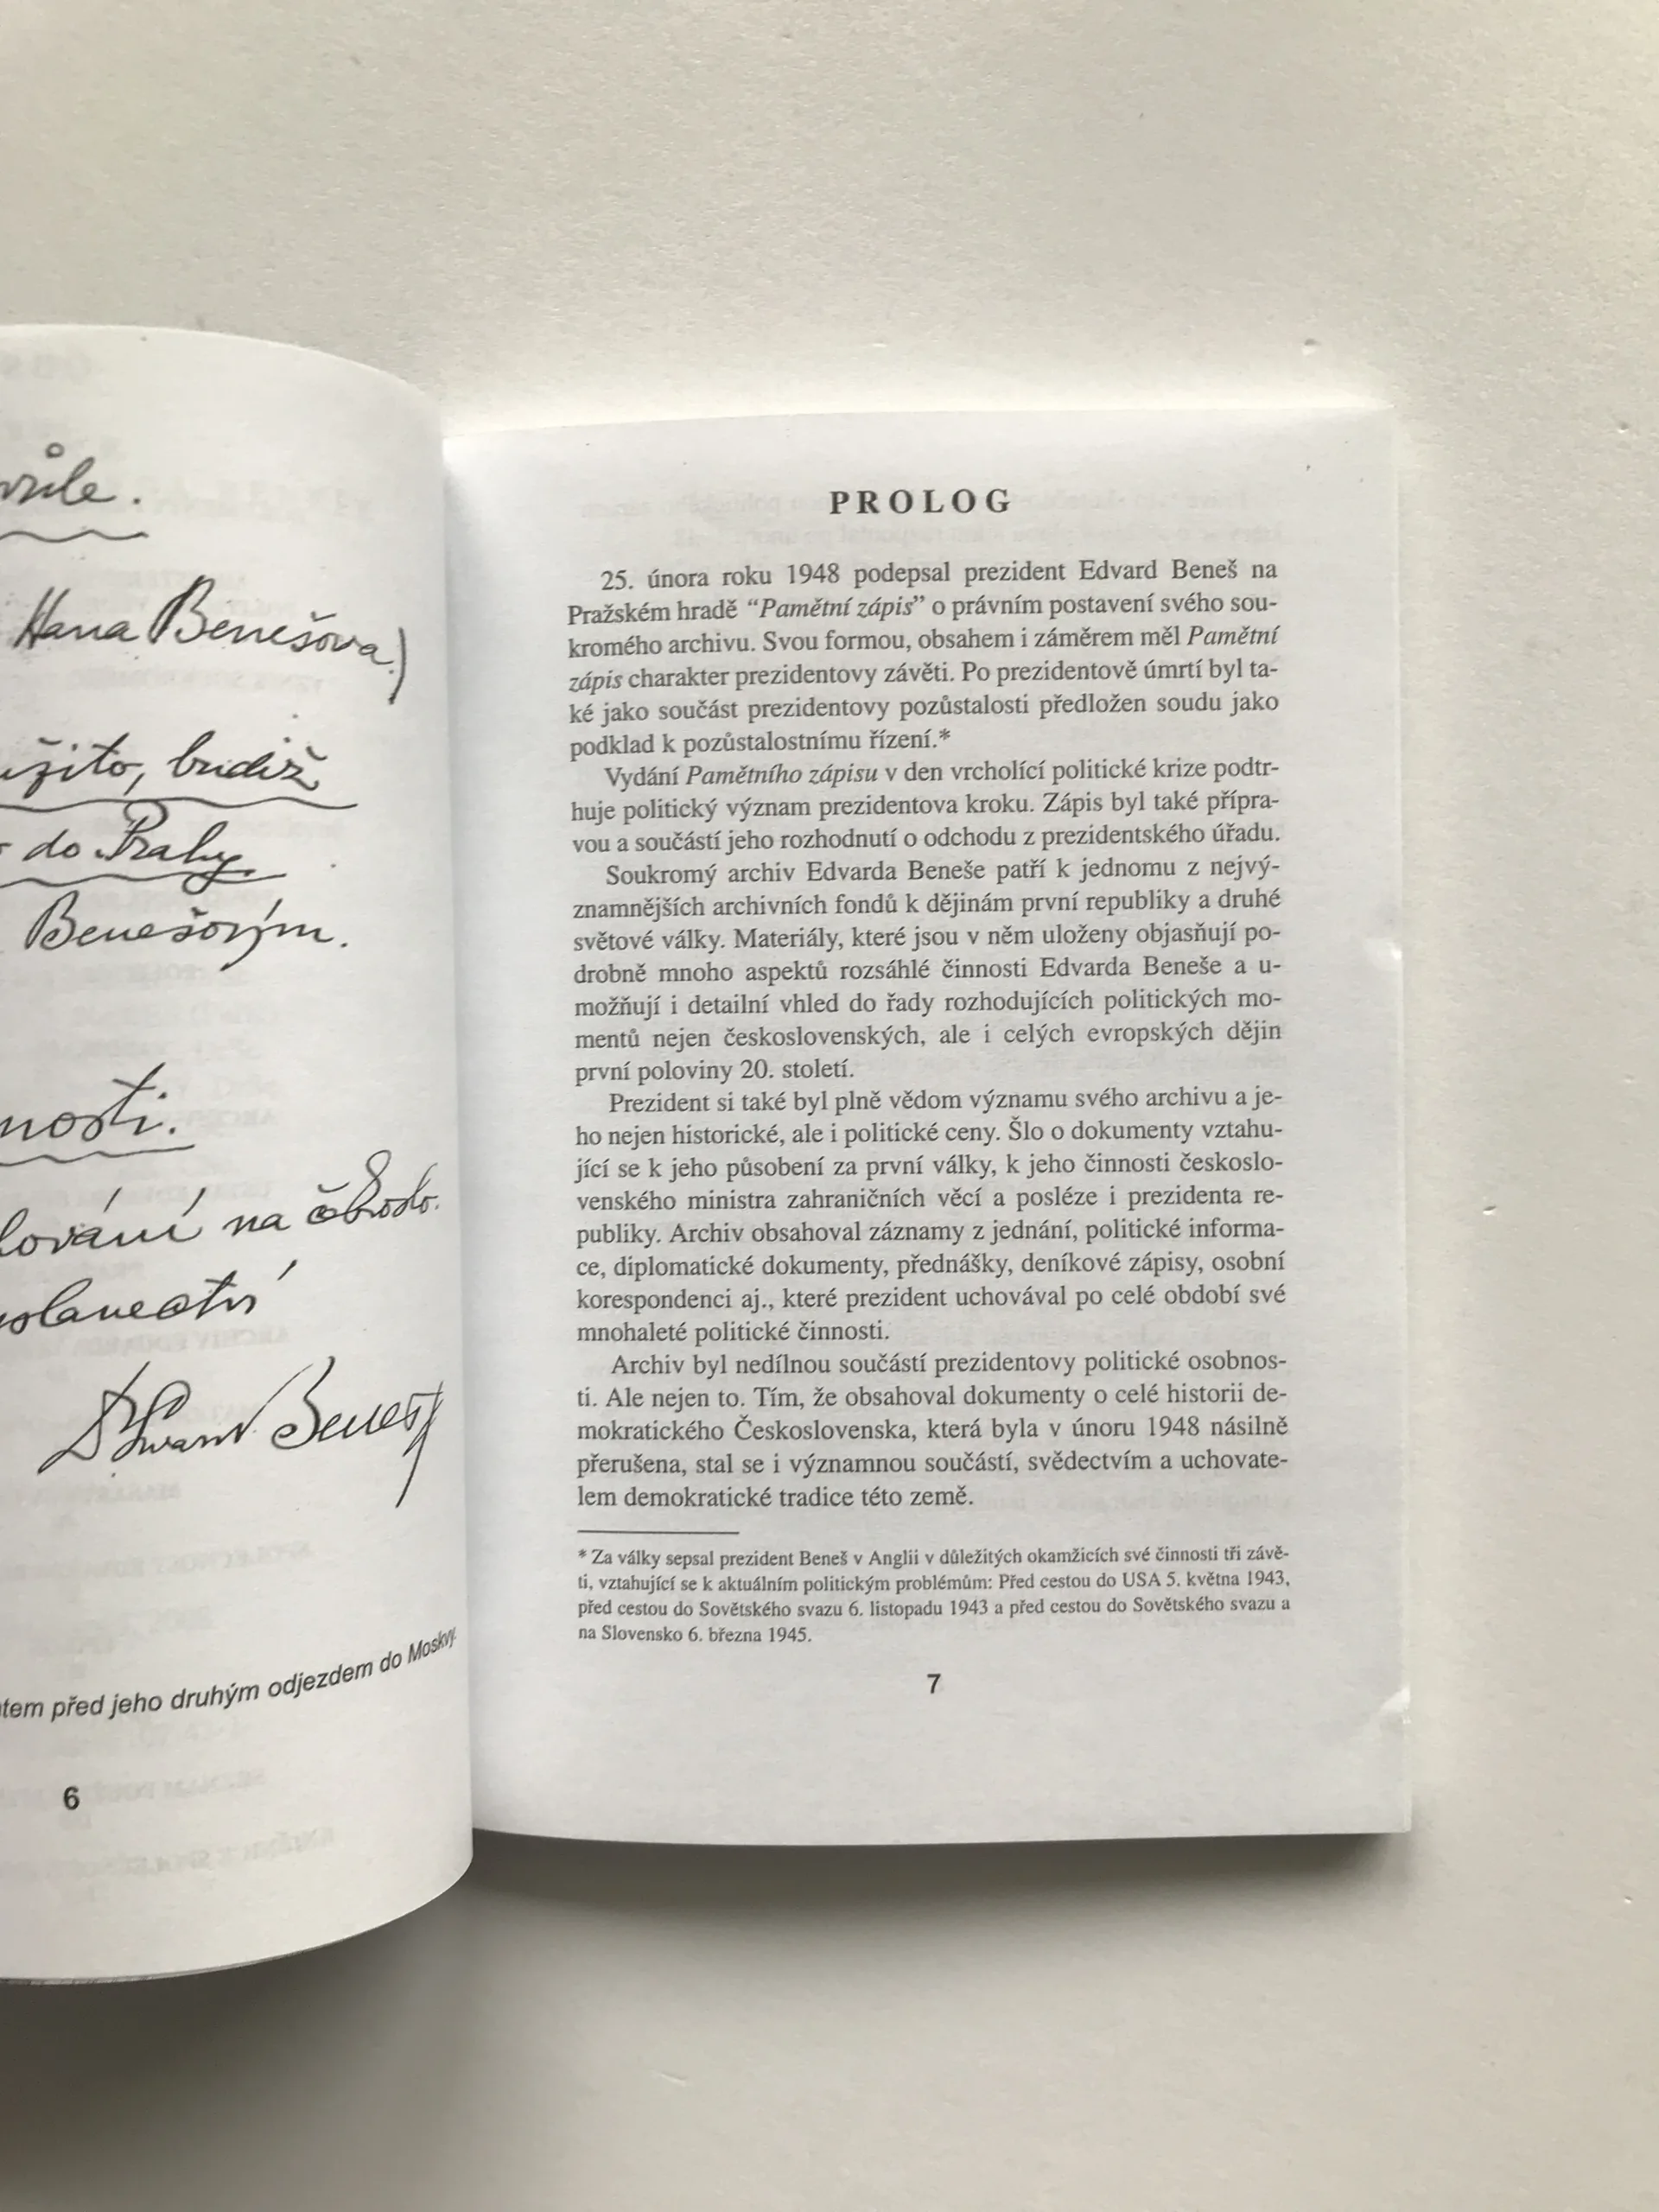 vůle.
Hana Benešova)
užito, budiž
do Prahy.
Benešovým.
nosti.
na
Edvard Beneš
tem před jeho druhým odjezdem do Moskvy.
6
PROLOG
25. února roku 1948 podepsal prezident Edvard Beneš na
Pražském hradě “Pamětní zápis” o právním postavení svého sou-
kromého archivu. Svou formou, obsahem i záměrem měl Pamětní
zápis charakter prezidentovy závěti. Po prezidentově úmrtí byl ta-
ké jako součást prezidentovy pozůstalosti předložen soudu jako
podklad k pozůstalostnímu řízení.*
Vydání Pamětního zápisu v den vrcholící politické krize podtr-
huje politický význam prezidentova kroku. Zápis byl také přípra-
vou a součástí jeho rozhodnutí o odchodu z prezidentského úřadu.
Soukromý archiv Edvarda Beneše patří k jednomu z nejvý-
znamnějších archivních fondů k dějinám první republiky a druhé
světové války. Materiály, které jsou v něm uloženy objasňují po-
drobně mnoho aspektů rozsáhlé činnosti Edvarda Beneše a u-
možňují i detailní vhled do řady rozhodujících politických mo-
mentů nejen československých, ale i celých evropských dějin
první poloviny 20. století.
Prezident si také byl plně vědom významu svého archivu a je-
ho nejen historické, ale i politické ceny. Šlo o dokumenty vztahu-
jící se k jeho působení za první války, k jeho činnosti českoslo-
venského ministra zahraničních věcí a posléze i prezidenta re-
publiky. Archiv obsahoval záznamy z jednání, politické informa-
ce, diplomatické dokumenty, přednášky, deníkové zápisy, osobní
korespondenci aj., které prezident uchovával po celé období své
mnohaleté politické činnosti.
Archiv byl nedílnou součástí prezidentovy politické osobnos-
ti. Ale nejen to. Tím, že obsahoval dokumenty o celé historii de-
mokratického Československa, která byla v únoru 1948 násilně
přerušena, stal se i významnou součástí, svědectvím a uchovate-
lem demokratické tradice této země.
* Za války sepsal prezident Beneš v Anglii v důležitých okamžicích své činnosti tři závě-
ti, vztahující se k aktuálním politickým problémům: Před cestou do USA 5. května 1943,
před cestou do Sovětského svazu 6. listopadu 1943 a před cestou do Sovětského svazu a
na Slovensko 6. března 1945.
7